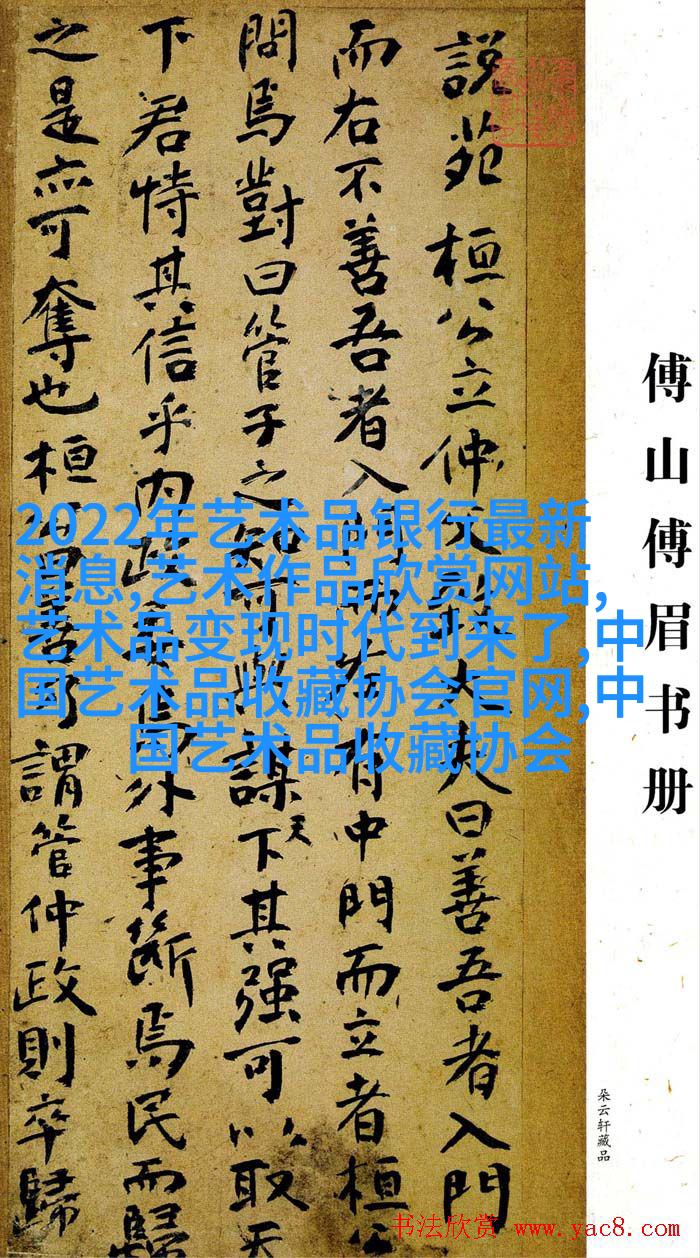 傅山傅眉书册
朵云轩藏品
説苑 桓公立仲父致大夫曰善吾者入門
而右不善吾者入門而左有中門而立者桓公
問焉對曰管子之知可與謀天下其强可以取天
下君恃其信乎内政委焉外事斷焉民而歸
之是亦可奪也桓公曰善乃謂管仲政則卒歸
2022年艺术品银行最新
消息,艺术作品欣赏网站,
艺术品变现时代到来了,中
国艺术品收藏协会官网,中
国艺术品收藏协会
书法欣赏 www.yac8.com